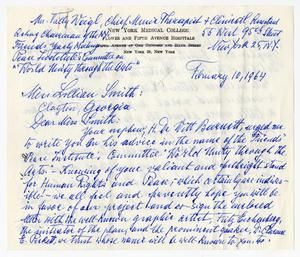 Mrs Vally Weigl, Chief Music Therapist & Clinical Resident
NEW YORK MEDICAL COLLEGE
FLOWER AND FIFTH AVENUE HOSPITALS
FIFTH AVENUE AT ONE HUNDRED AND SIXTH STREET
NEW YORK 29, NEW YORK
Acting Chairman of the
Friends Yearly Meeting
Peace Committee's Committee on
"World Unity through the Arts"
55 West 95th Street
New York 25, N.Y.
February 10, 1964
Miss Lillian Smith:
Clayton, Georgia
Dear Miss Smith:
Your nephew, H. De Witt Barnett, urged me
to write you his advice in the name of the Friends'
Peace Institute's Committee "World Unity through the
Arts" – Knowing of your valiant and forthright stand
for Human Rights and Peace, which certainly are indivi-
sible – we all feel and sincerely hope you will be
in favor of our project and co-sign the enclosed
letter with the well-known graphic artist, Fritz Eichenberg,
the initiator of the plan, and the prominent composer, Dr. Clarence
E. Pickett, we trust whose name will be well-known to you